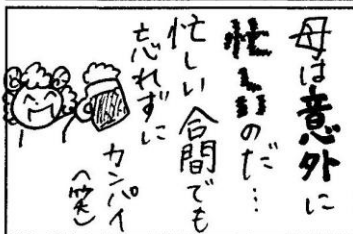 母は意外に
忙しいのだ…
忙しい合間でも
忘れずに
カンパイ
(笑)